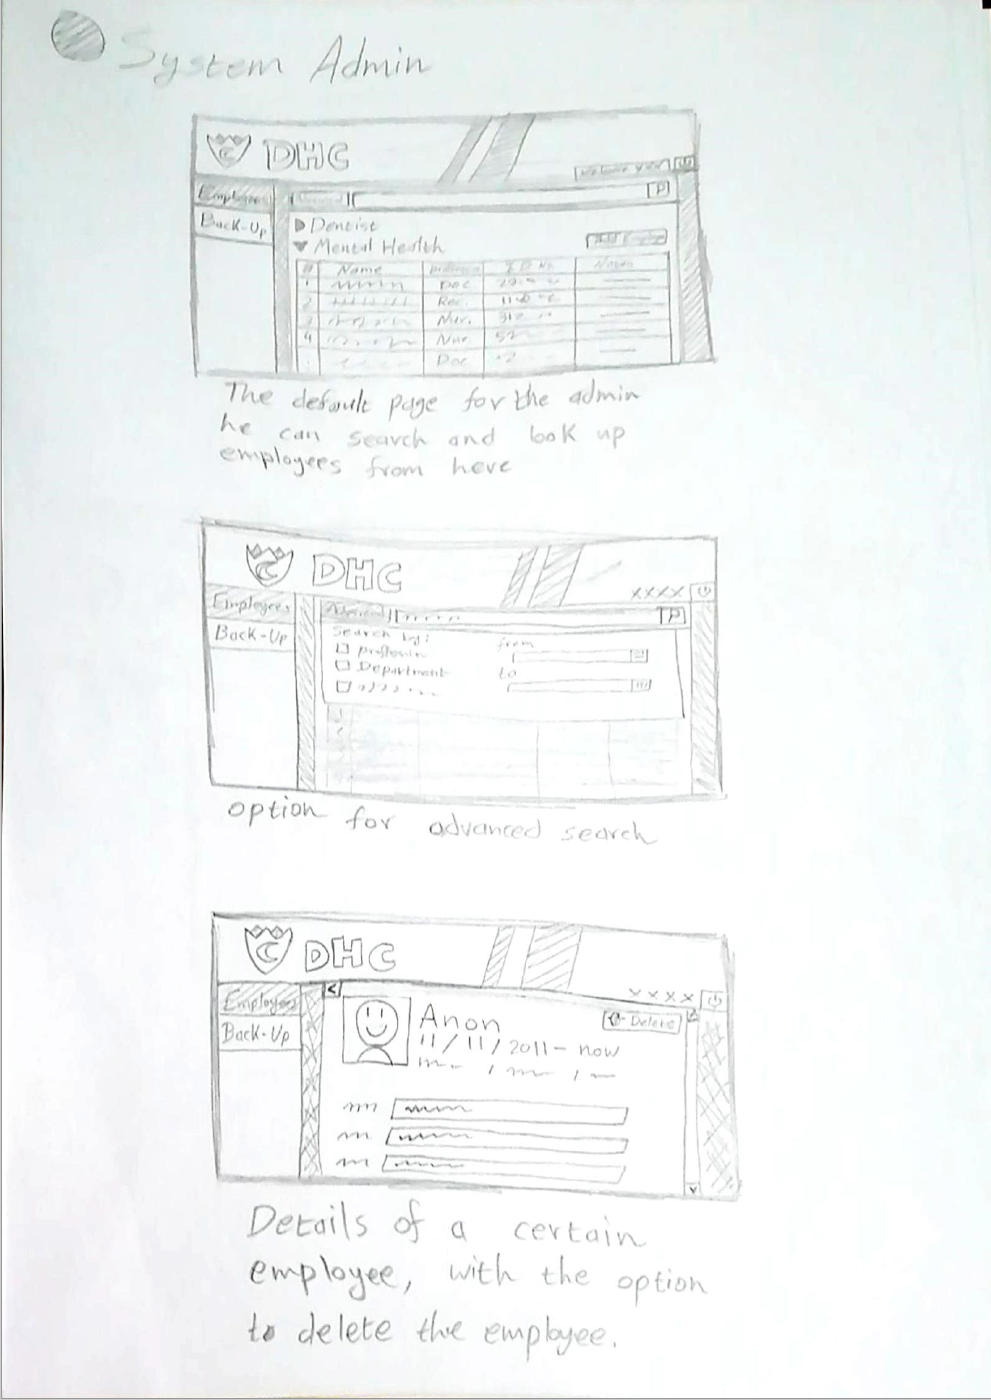 System Admin
C DHC
Employees
Back-Up
Dentist
Mental Health
# Name I D No. Notes
1 Doc
2 Rec.
3 Nur. 312
4 Nur
Doc
The default page for the admin
he can search and look up
employees from here
C DHC
XXXX
Employees
Back-Up
Search by:
from
Department
to
option for advanced search
C DHC
XXXX
Employees
<
Delete
Back-Up
Anon
11/11/2011 - now
Details of a certain
employee, with the option
to delete the employee.